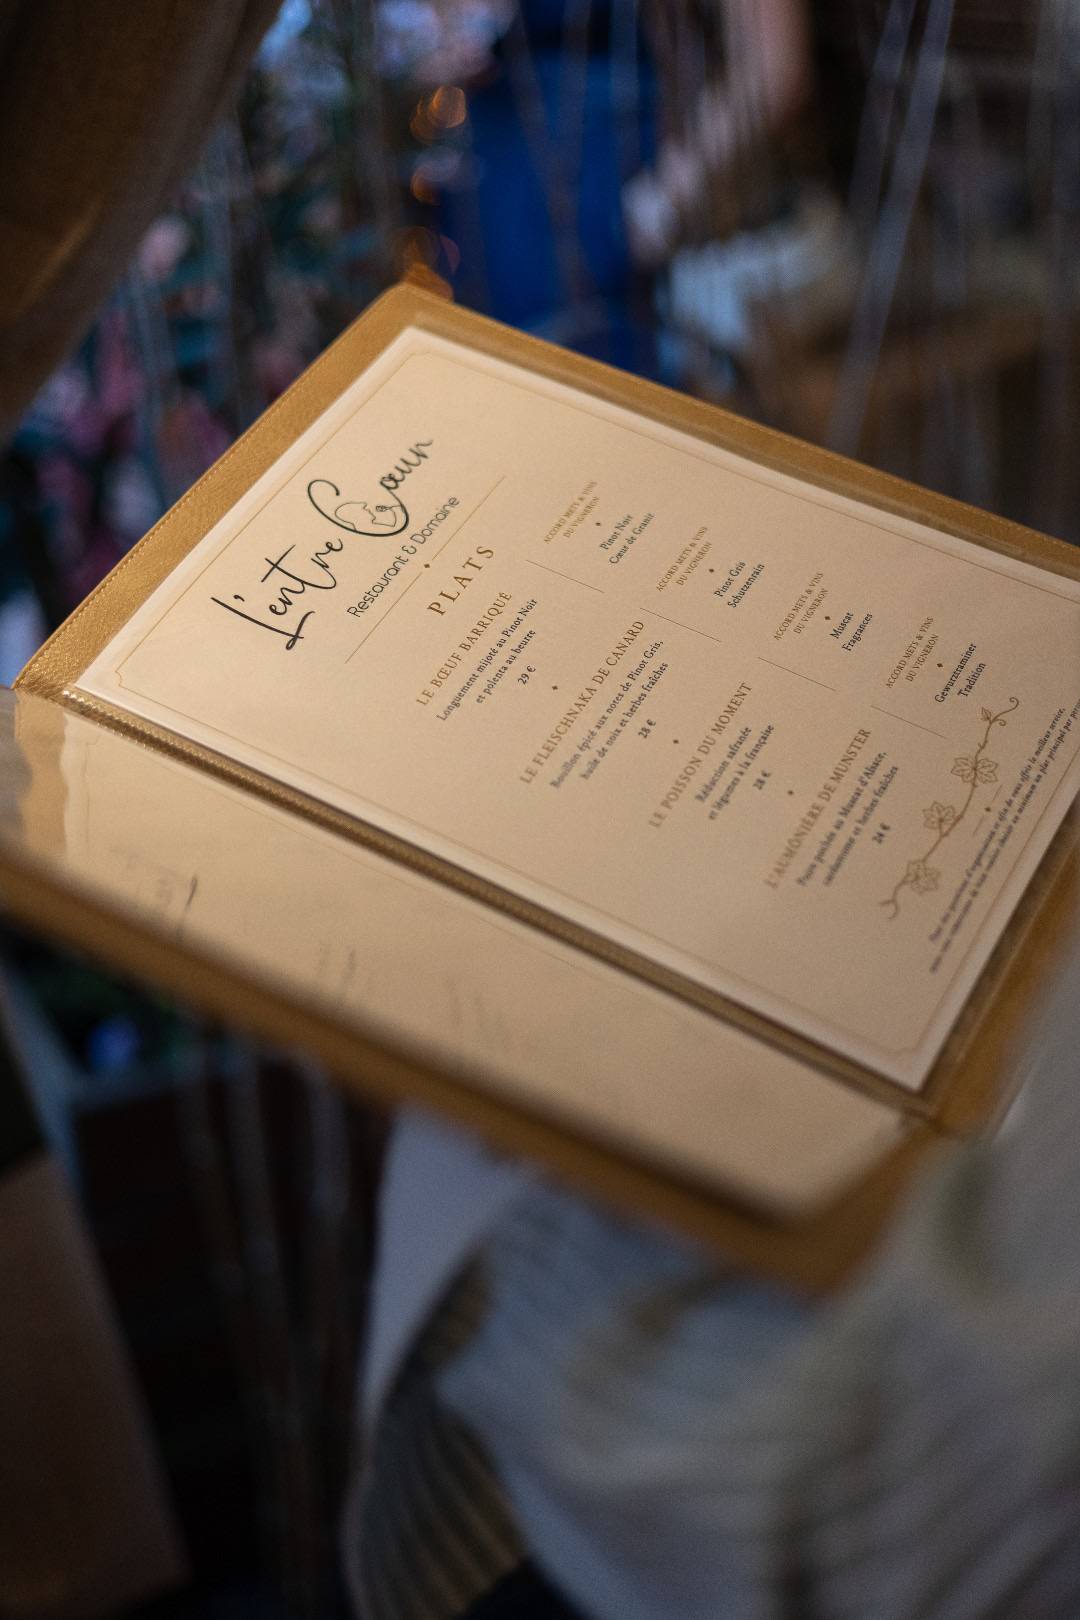 L'entre Cœur
Restaurant & Domaine
PLATS
LE BŒUF BARRIQUÉ
Longuement mijoté au Pinot Noir
et polenta au beurre
29 €
ACCORD METS & VINS
DU VIGNERON
Pinot Noir
Cœur de Granit
LE FLEISCHNAKA DE CANARD
Bouillon épicé aux notes de Pinot Gris,
huile de noix et herbes fraîches
28 €
ACCORD METS & VINS
DU VIGNERON
Pinot Gris
Schutzenrain
LE POISSON DU MOMENT
Réduction safranée
et légumes à la française
28 €
ACCORD METS & VINS
DU VIGNERON
Muscat
Fragrances
L'AUMÔNIÈRE DE MUNSTER
Poire pochée au Muscat d'Alsace,
cardamome et herbes fraîches
24 €
ACCORD METS & VINS
DU VIGNERON
Gewurztraminer
Tradition
Pour des questions d'organisation et afin de vous offrir le meilleur service,
nous vous remercions de bien vouloir choisir au minimum un plat principal par